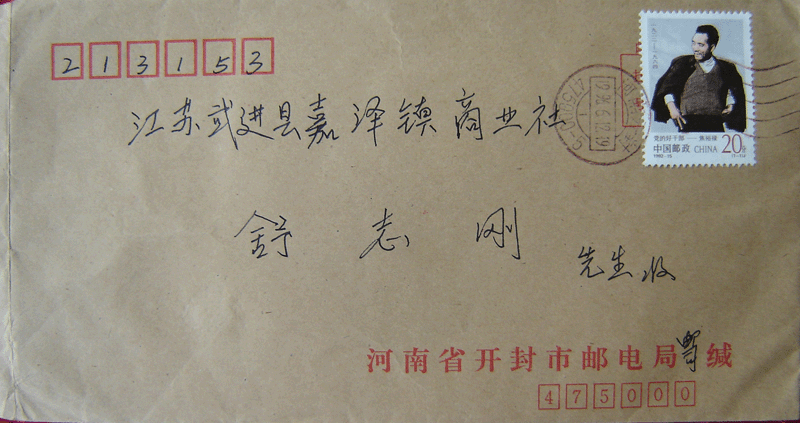 213153
江苏武进县嘉泽镇商业社
舒志刚
先生收
党的好干部——焦裕禄
中国邮政 CHINA 20分
1992-15 (1-1)J
河南省开封市邮电局 缄
475000